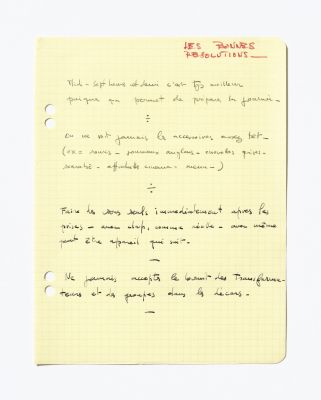 LES BONNES
RESOLUTIONS_
Midi - sept heures et demi c'est tjs meilleur
puisque ça permet de préparer la journée.
÷
On ne voit jamais les accessoires assez tôt -
(ex = souris - journaux anglais - cravates grises -
- affichette cinéma - menu - )
÷
Faire les sons seuls immédiatement après les
prises - avec clap, comme réelle - avec même
peut être appareil qui suit -
—
Ne jamais accepter le bruit des transforma-
teurs et des groupes dans les décors -
—